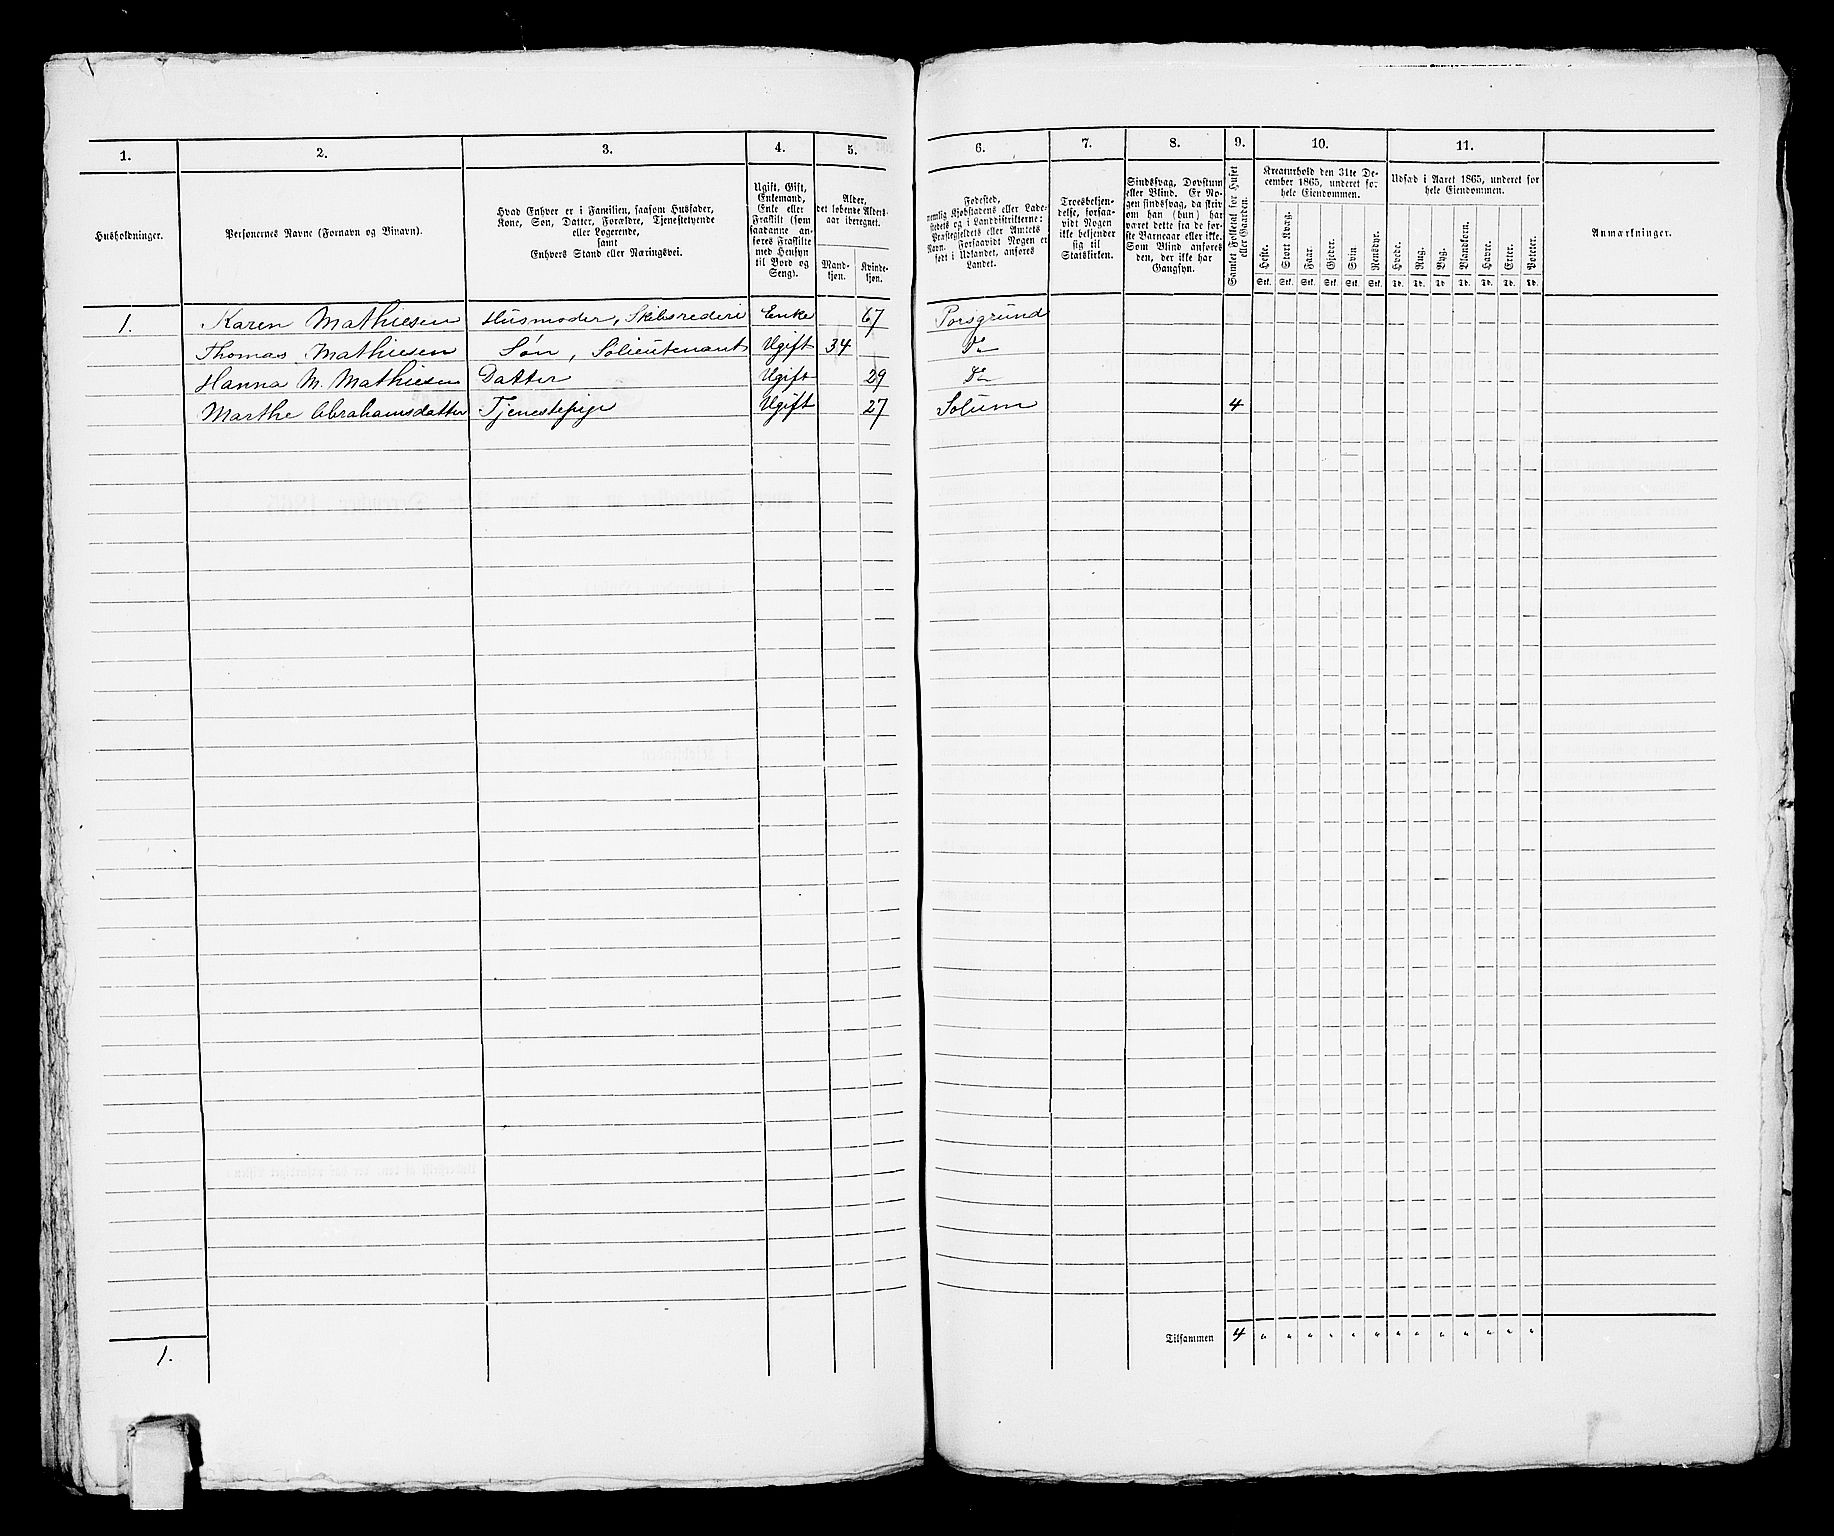 1. 2. 3. 4. 5. 6. 7. 8. 9. 10. 11.
Husholdninger.
Personernes Navne (Fornavn og Tilnavn).
Hvad Enhver er i Familien, saasom Husfader,
Kone, Søn, Datter, Forældre, Tjenestetyende
eller Logerende,
samt
Enhvers Stand eller Næringsvei.
Ugift, Gift,
Enkemand,
Enke eller
Fraskilt (som
saadanne an-
føres Fraskilte
med Hensyn
til Bord og
Seng).
Alder,
det løbende Alders-
aar iberegnet.
Mand-
kjøn.
Kvinde-
kjøn.
Fødested,
nemlig Kjøbstadens eller Lade-
stedets og i Landdistrikterne:
Præstegjeldets eller Amtets
Navn. Forsaavidt Nogen er
født i Udlandet, anføres
Landet.
Troesbekjen-
delse, forsaa-
vidt Nogen
ikke bekjender
sig til
Statskirken.
Sindssvag, Døvstum
eller Blind. Er No-
gen sindssvag, da skriv
om han (hun) har
været dette fra de før-
ste Barneaar eller ikke.
Som Blind anføres
den, der ikke har
Gangsyn.
Samlet Folketal for Huset
eller Gaarden.
Kreaturhold den 31te De-
cember 1865, underet for
hele Eiendommen.
Heste. Stort Kvæg. Faar. Gjeder. Svin. Rensdyr.
Stk. Stk. Stk. Stk. Stk. Stk.
Udsæd i Aaret 1865, underet for
hele Eiendommen.
Hvede. Rug. Byg. Blandkorn. Havre. Erter. Poteter.
Td. Td. Td. Td. Td. Td. Td.
Anmærkninger.
1. Karen Mathiesen Husmoder, Skibsrederi Enke 67 Porsgrund
Thomas Mathiesen Søn, Sølieutenant Ugift 34 Do
Hanna M. Mathiesen Datter Ugift 29 Do
Marthe Abrahamsdatter Tjenestepige Ugift 27 Solum 4
Tilsammen 4 " " " " " " " " " " " " "
1.